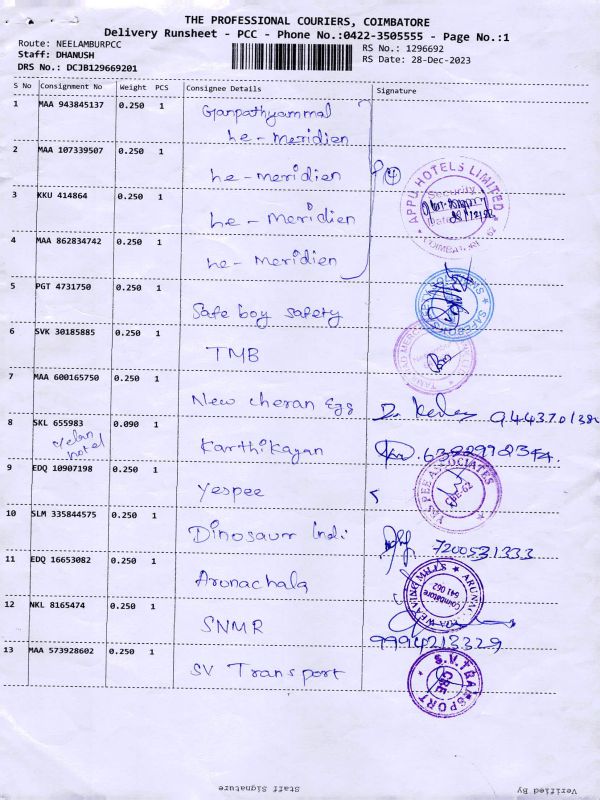 THE PROFESSIONAL COURIERS, COIMBATORE
Delivery Runsheet - PCC - Phone No.:0422-3505555 - Page No.:1
Route: NEELAMBURPCC
RS No.: 1296692
Staff: DHANUSH
RS Date: 28-Dec-2023
DRS No.: DCJB129669201
S No Consignment No Weight PCS Consignee Details Signature
1 MAA 943845137 0.250 1 Ganpathyammal
he - meridien
2 MAA 107339507 0.250 1
he - meridien
3 KKU 414864 0.250 1
he - meridien
4 MAA 862834742 0.250 1
he - meridien
APPU HOTELS LIMITED
Security
5 PGT 4731750 0.250 1
Safe boy safety
6 SVK 30185885 0.250 1
TMB
7 MAA 600165750 0.250 1
New cheran Egg
8 SKL 655983 0.090 1
hotel
Karthikayan
9 EDQ 10907198 0.250 1
yespee
YES PEE ASSOCIATES
CBE-62
10 SLM 335844575 0.250 1
Dinosaur Indi
7200531333
11 EDQ 16653082 0.250 1
Arunachala
ARUNACHALA WEAVING MILLS
Coimbatore
641 062
12 NKL 8165474 0.250 1
SNMR
9994213329
13 MAA 573928602 0.250 1
SV Transport
S.V.TRANSPORT
CBE
Staff Signature
Verified By